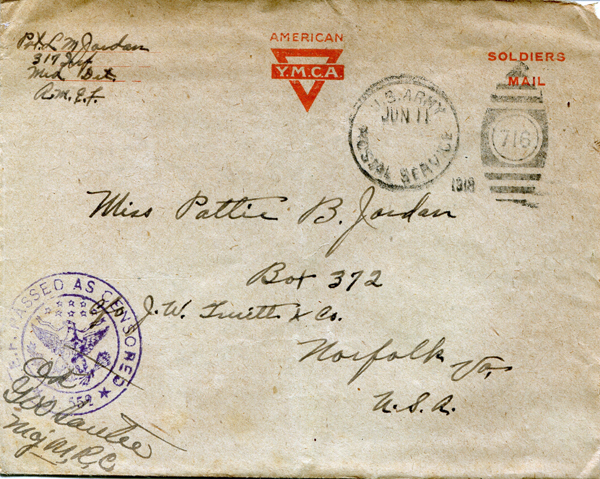 Pvt. L M Jordan
317 Inf
Med Det
A.M.E.F.
AMERICAN
Y.M.C.A.
SOLDIERS
MAIL
U.S. ARMY
JUN 11
POSTAL SERVICE
1918
716
Miss Pattie B. Jordan
Box 372
c/o J.W. & Co.
Norfolk Va,
U.S.A.
PASSED AS CENSORED
552
OK
Maj M.R.C.